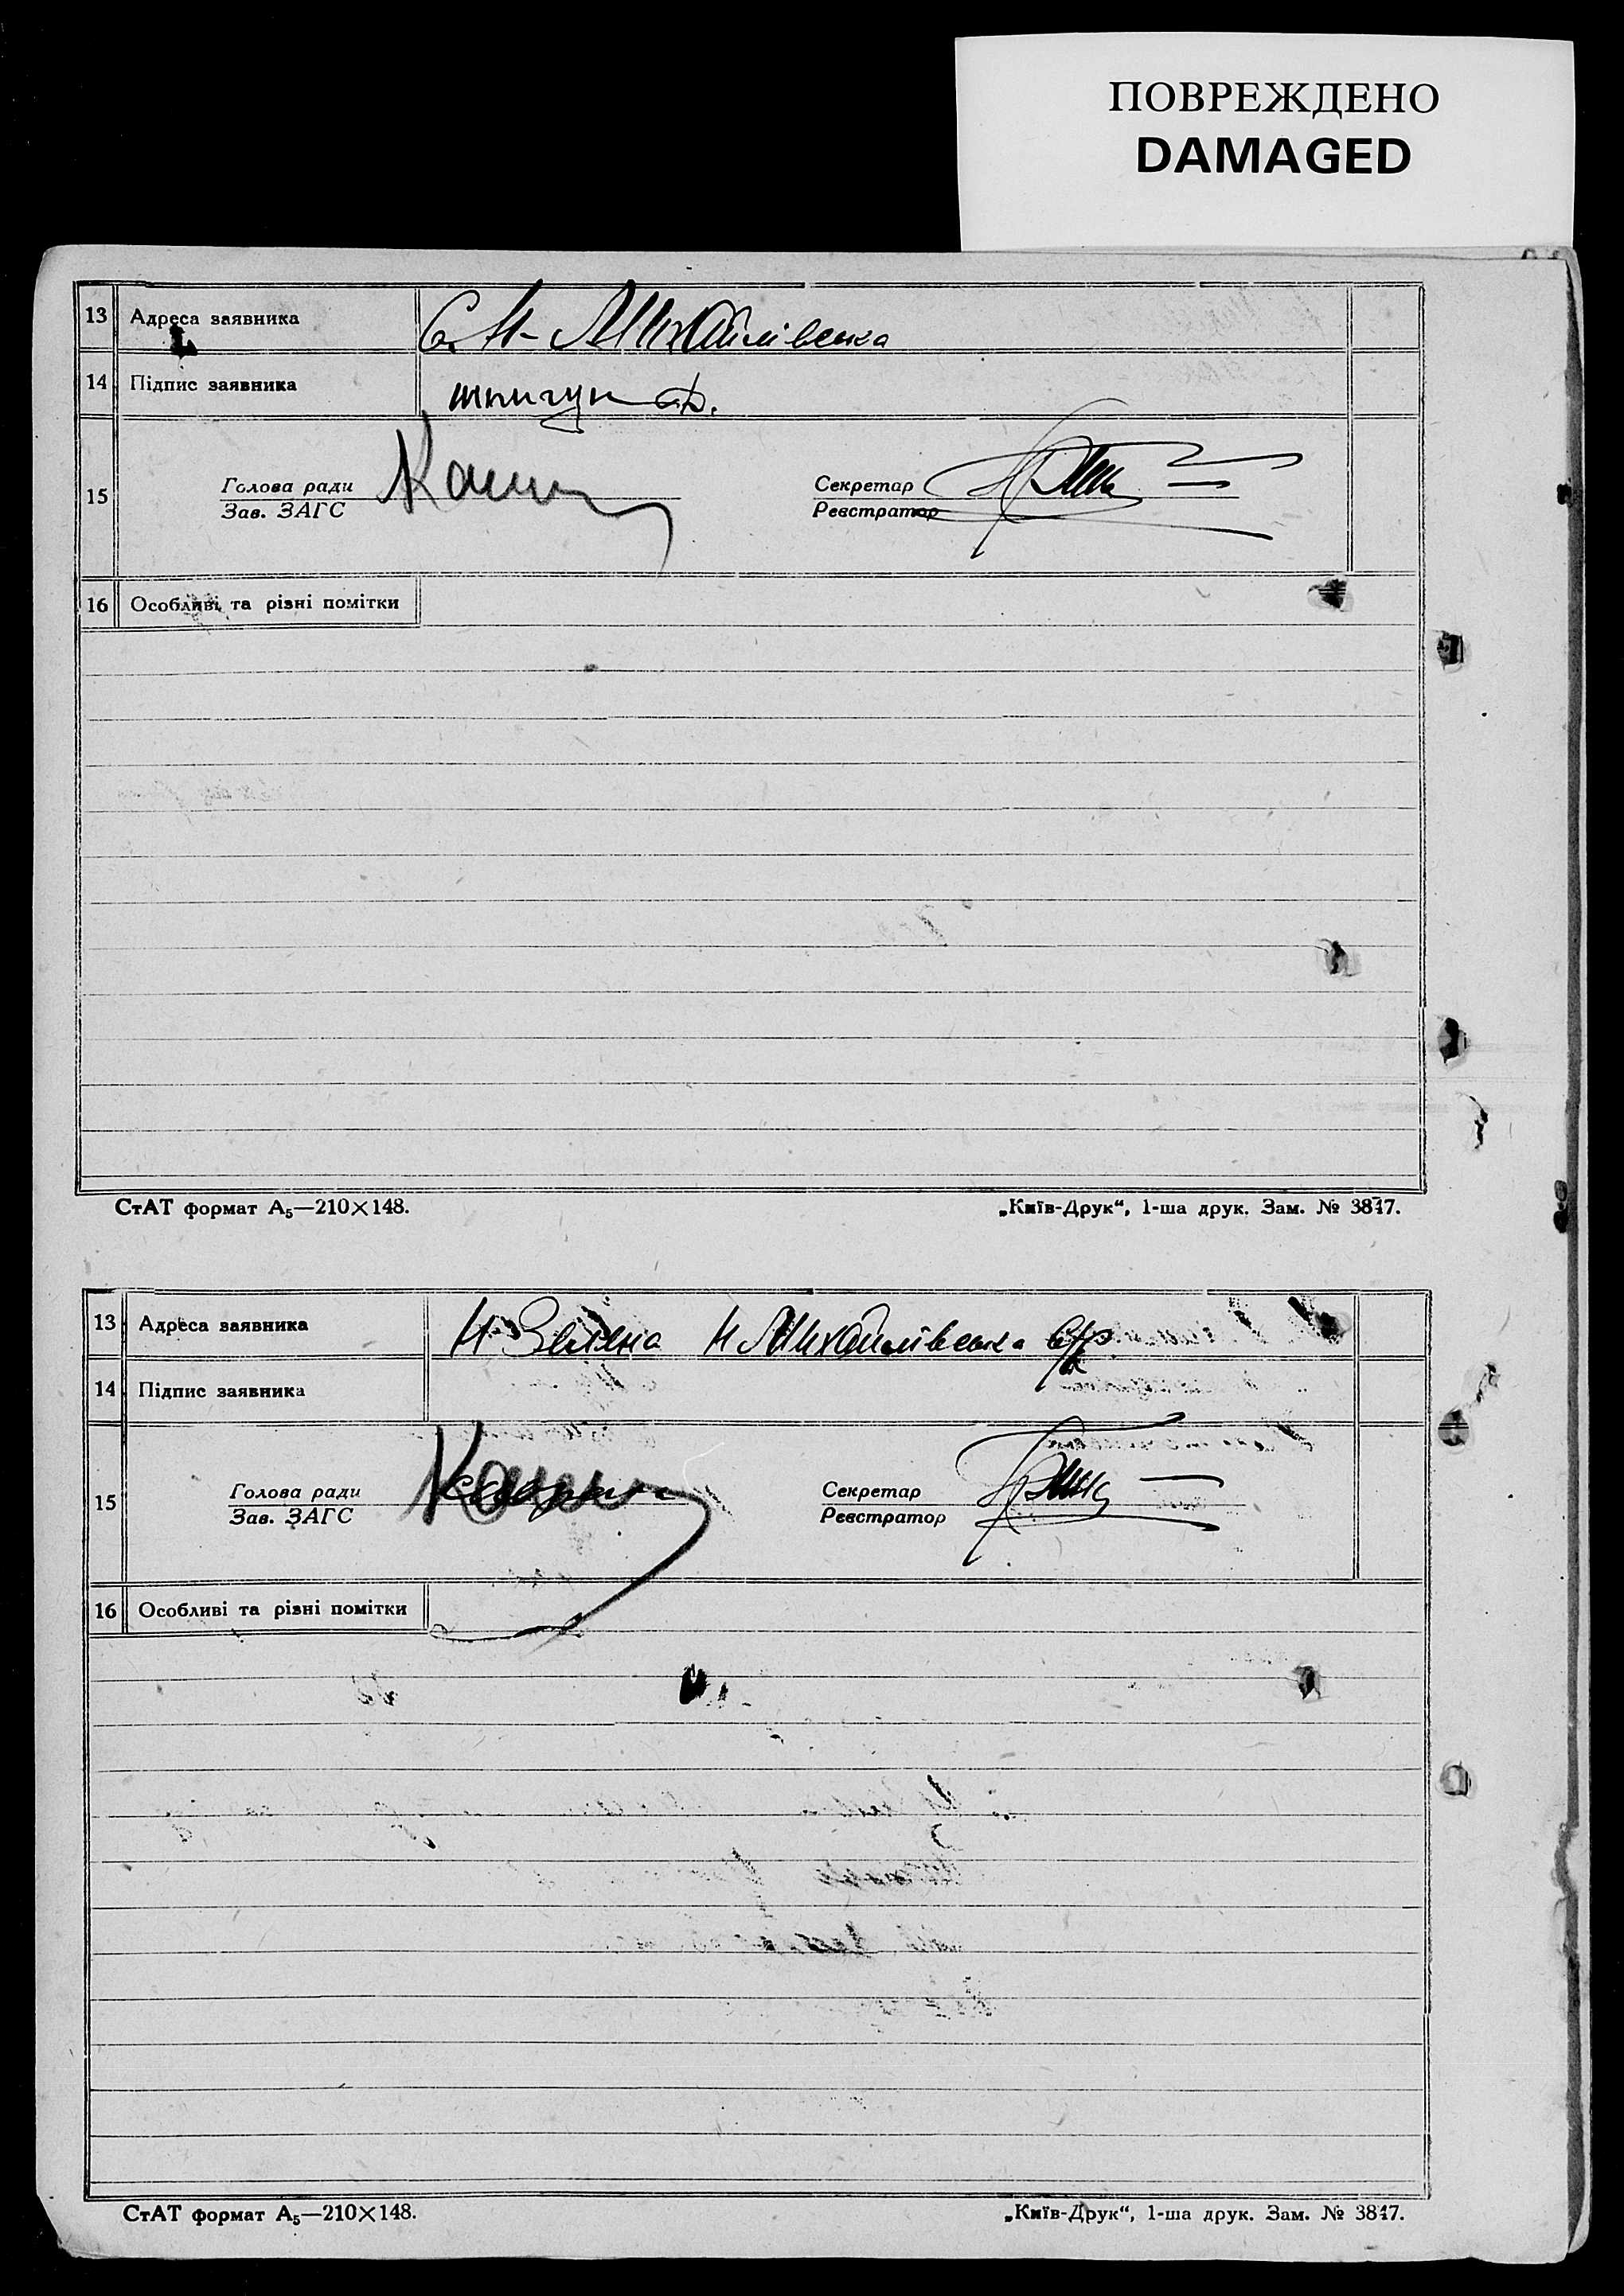 ПОВРЕЖДЕНО
DAMAGED
13 Адреса заявника С. Н-Михайлівка
14 Підпис заявника шпигун Ф.
15 Голова ради Секретар
Зав. ЗАГС Реєстратор
16 Особливі та різні помітки
СтАТ формат А₅—210×148. „Київ-Друк“, 1-ша друк. Зам. № 3847.
13 Адреса заявника Н Зелена Н Михайлівська с/р
14 Підпис заявника
15 Голова ради Секретар
Зав. ЗАГС Реєстратор
16 Особливі та різні помітки
СтАТ формат А₅—210×148. „Київ-Друк“, 1-ша друк. Зам. № 3847.